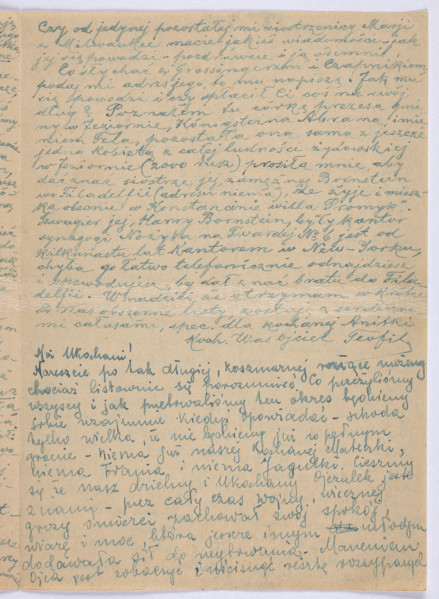 Czy od jedynej pozostałej mi siostrzenicy Marji
z Milwaukee macie jakieś wiadomości, jak
jej się powodzi - pozdrówcie ją odemnie.
Co słychać z Grossingerem i Czapnikiem,
podaj mi adres jego, to mu napiszę. Jak mu
się powodzi i czy spłacił Ci coś na swój
dług? Poznałem tu córkę prezesa gminy
w Jeziornie, Königsterna Abrama, imie-
niem Fela, pozostała ona sama z jeszcze
jedną kobietą z całej ludności żydowskiej
w Jeziornie, prosiła mnie aby
dać znać siostrze jej zamężnej Bornstein
w Filadelfii (adresu nie zna), że żyje i miesz-
ka obecnie w Konstancinie willa "Promyk".
Szwagier jej, Harry Bornstein, były kantor
synagogi Nożyka na Twardej № 6 jest od
kilkunastu lat Kantorem w New-Yorku,
chyba go łatwo telefonicznie odnajdziesz
i by dał znać bratu do Fila-
delfii. W nadziei, że otrzymam w krótce
od Was obszerne listy, z serdeczne-
mi całusami, spec. dla kochanej Anitki
Koch. Was Ojciec Teofil
Moi Ukochani!
Nareszcie po tak długiej, koszmarnej rozłące możemy
chociaż listownie się porozumieć. Co przeżyliśmy
wszyscy i jak przetrwaliśmy ten okres będziemy
sobie wzajemnie kiedyś opowiadać - szkoda
tylko wielka, że nie będziemy już w pełnym
gronie - niema już naszej kochanej Mateczki,
niema Frania, i niema Jagutki. Cieszmy
się że nasz dzielny i Ukochany Ojczulek jest
z nami - przez cały czas wojny, wiecznej
grozy śmierci zachował swój spokój,
wiarę i moc która jeszcze innym młodym
dodawała sił do przetrwania. Marzeniem
Ojca jest zobaczyć i uścisnąć resztę rozsypanych